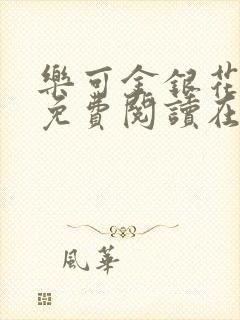 樂可金銀花
免費閱讀在
風華